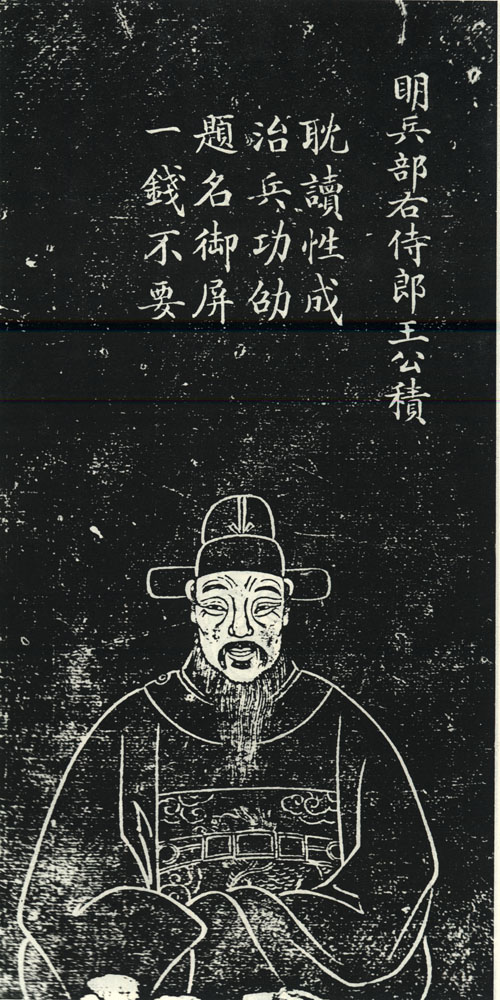 明兵部右侍郎王公積
耽讀性成
治兵功劭
題名御屏
一錢不要